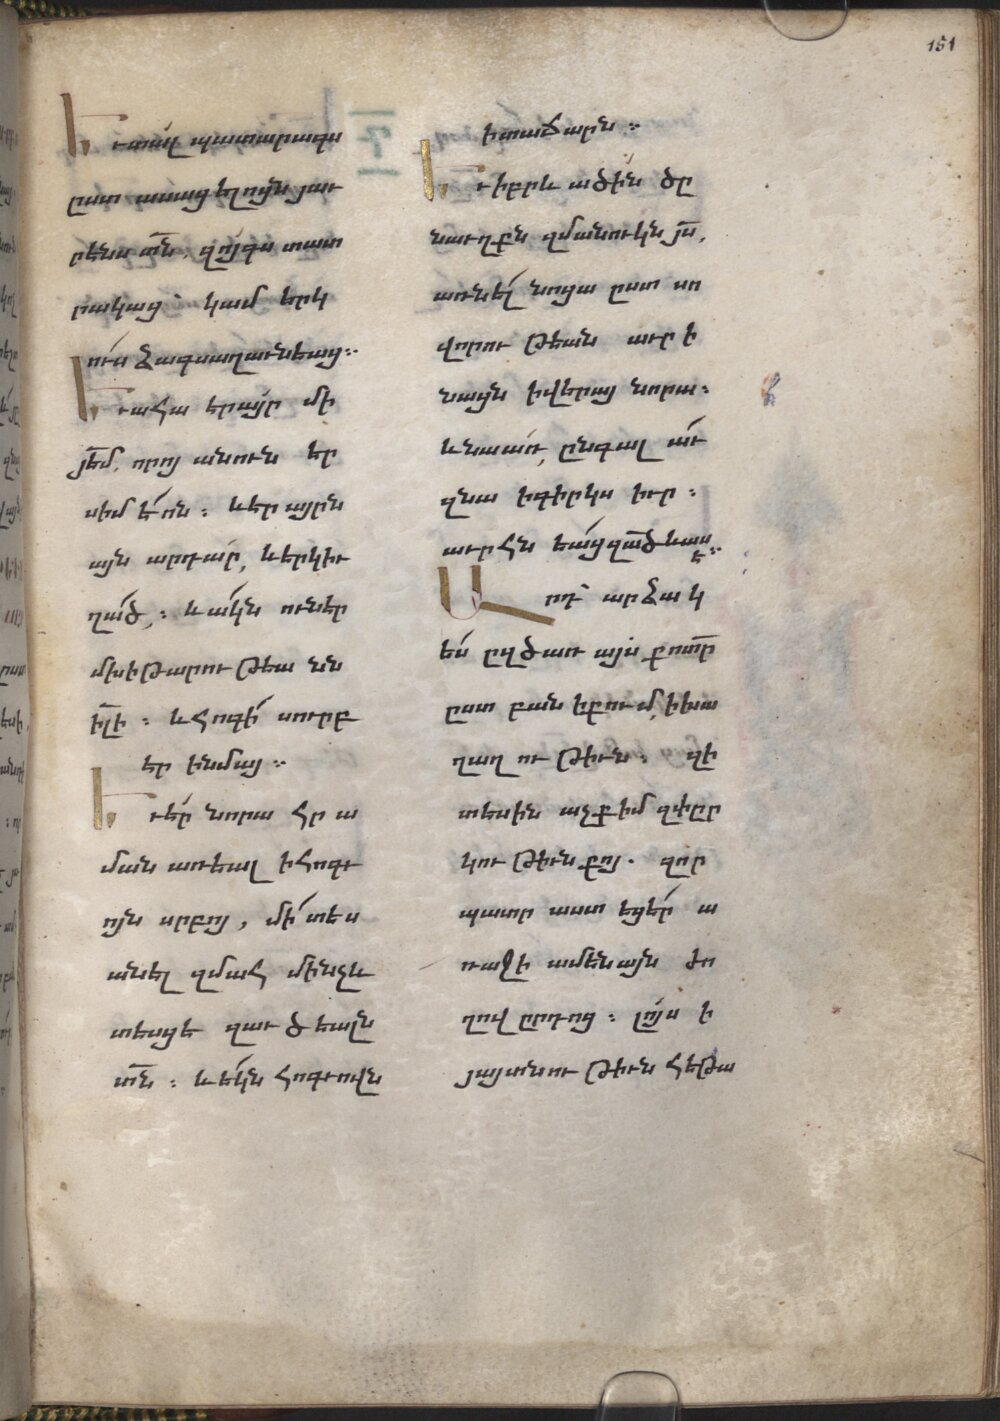 151
Եւ տալ պատարագս
ըստ ասացելոյն յաւ
րէնս տն. զոյգս տատ
րակաց՝ կամ երկ
ուս ձագս աղաւնեաց։
Եւ ահա էր այր մի
յեմ, որոյ անուն էր
սիմէոն։ և էր այրն
այն արդար, և երկիւ
ղած,։ և ակն ունէր
մխիթարութեանն
իլի։ և հոգի սուրբ
էր ի նմա յ։
Եւ էր նորա հր ա
ման առեալ ի հոգւ
ոյն սրբոյ, մի տես
անել զմահ մինչև
տեսցէ զաւծեալն
տն։ և եկն հոգւովն
ի տաճարն։
Եւ իբրև ածին ծը
նաւղքն զմանուկն յս,
առնել նոցա ըստ սո
վորութեան աւր ի
նացն ի վերայ նորա։
և նա առ, ընգալ աւ
զնա ի գիրկս իւր։
աւրհնեաց զած և ասէ։
Արդ՝ արձակ
ես ըզծառ այս քո տր
ըստ բանի քում, ի խա
ղաղութիւն։ զի
տեսին աչք իմ զփըր
կութիւն քոյ. զոր
պատրաստեցեր ա
ռաջի ամենայն ժո
ղովըրդոց։ լոյս ի
յայտնութիւն հեթա